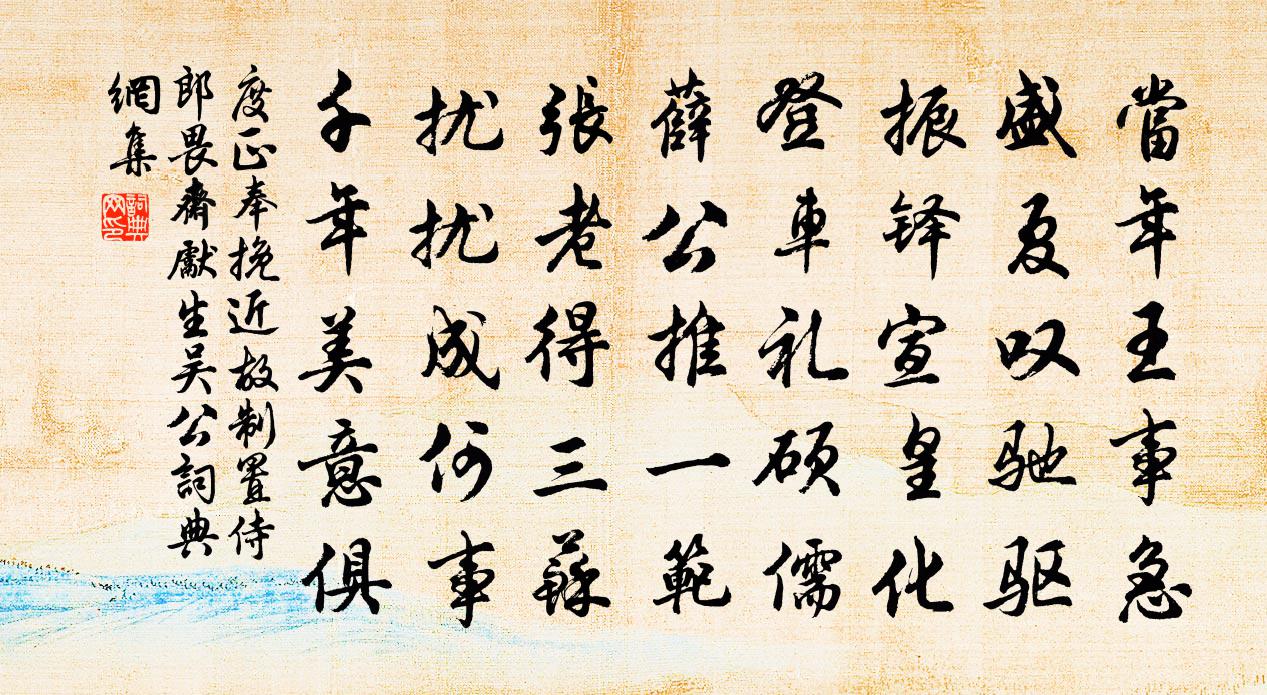 當年王事急
盛夏叹驰驱
振铎宣皇化
登車礼硕儒
薛公推一範
張老得三蘇
扰扰成何事
千年美意俱
度正奉挽近故制置侍
郎畏齋獻生吴公詞典
網集
詞典网印